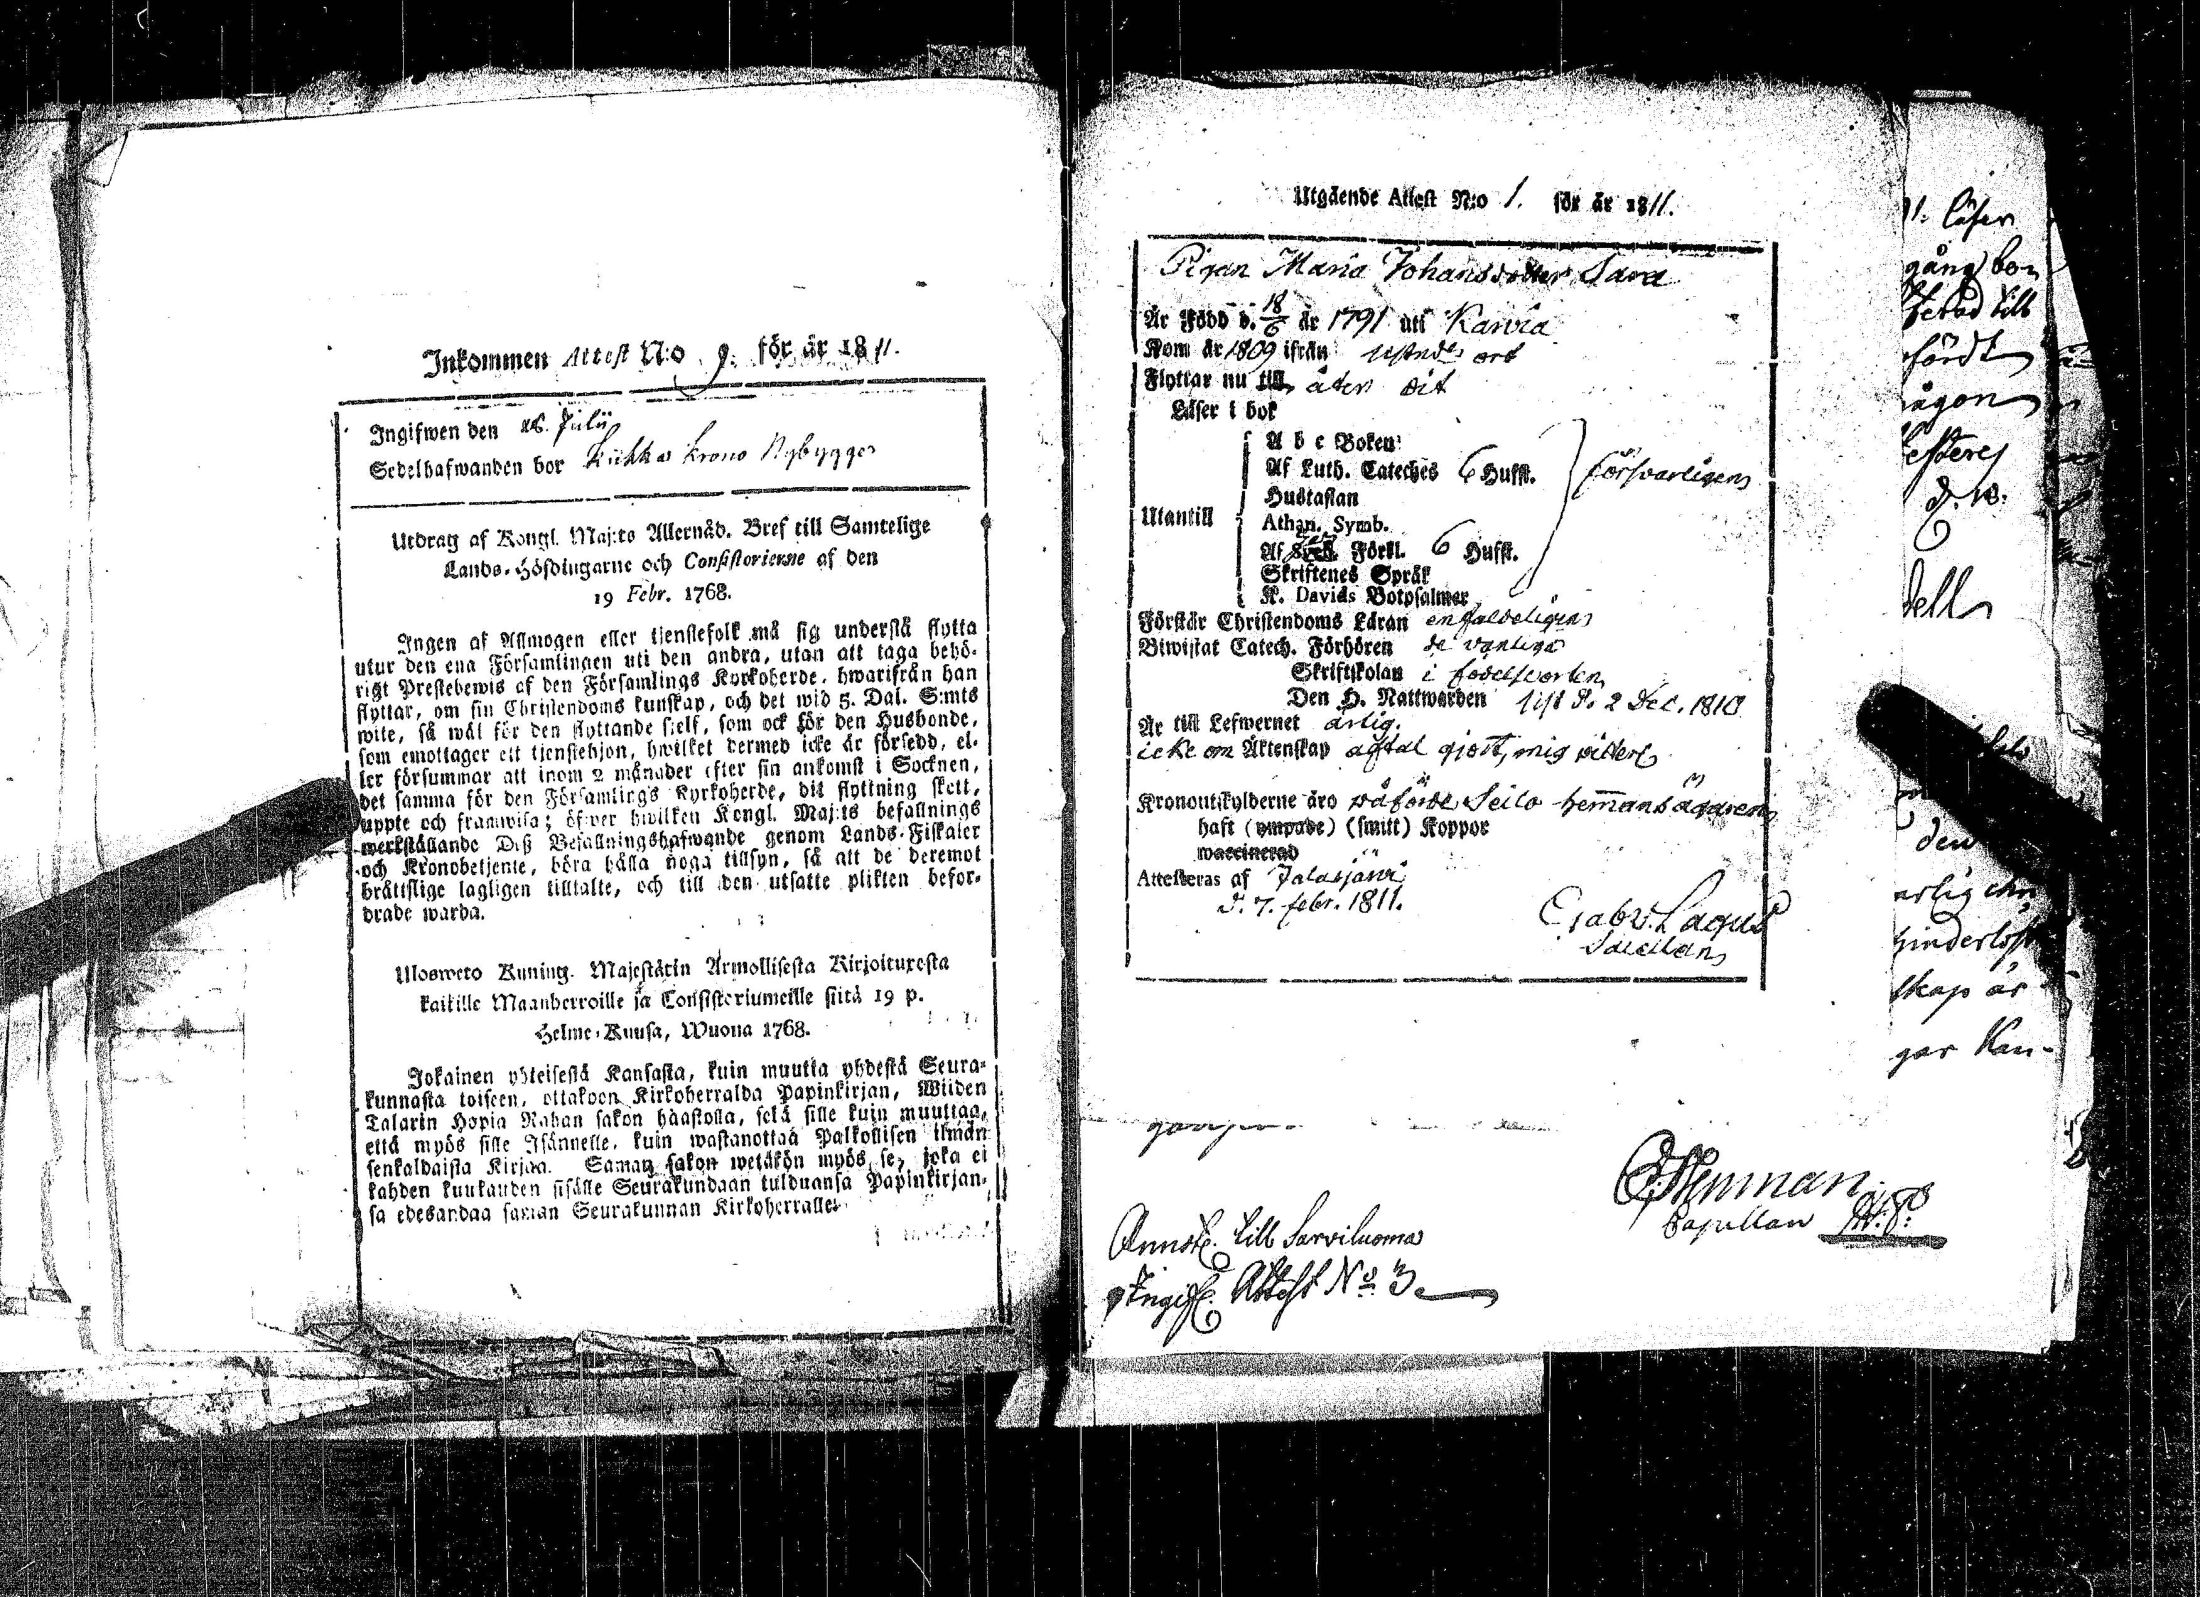 Inkommen Attest N:o 9. för år 1811.
Ingifwen den 28. Julii
Sedelhafwanden bor Kuhka krono Nybygge
Utdrag af Kongl. Maj:ts Allernåd. Bref till Samtelige
Lands-Höfdingarne och Consistorierne af den
19 Febr. 1768.
Ingen af Allmogen eller tjenstefolk må sig understå flytta
utur den ena Församlingen uti den andra, utan att taga behö-
rigt Prestebewis af den Församlings Kyrkoherde, hwarifrån han
flyttar, om sin Christendoms kunskap, och det wid 5. Dal. S:mts
wite, så wäl för den flyttande sjelf, som ock för den Husbonde,
som emottager ett tjenstehjon, hwilket dermed icke är försedd, el-
ler försummar att inom 2 månader efter sin ankomst i Socknen,
det samma för den Församlings Kyrkoherde, dit flyttning skett,
uppte och framwisa; öfwer hwilken Kongl. Maj:ts befallnings
werkställande Deß Befallningshafwande genom Lands-Fiskaler
och Kronobetjente, böra hålla noga tillsyn, så att de deremot
bråttslige lagligen tilltalte, och till den utsatte plikten befor-
drade warda.
Ulosweto Kuning. Majestätin Armollisesta Kirjoituxesta
kaikille Maanherroille ja Consistoriumeille siitä 19 p.
Helme-Kuusa, Wuona 1768.
Jokainen yhteisestä Kansasta, kuin muutta yhdestä Seura-
kunnasta toiseen, ottakoon Kirkoherralda Papinkirjan, Wiiden
Talarin Hopia Rahan sakon haastolla, sekä sille kuin muuttaa,
että myös sille Isännelle, kuin wastanottaa Palkollisen ilman
senkaldaista Kirjaa. Saman sakon wetäkön myös se, joka ei
kahden kuukauden sisälle Seurakundaan tulduansa Papinkirjan-
sa edesandaa saman Seurakunnan Kirkoherralle.
Utgående Attest N:o 1. för år 1811.
Pigan Maria Johansdotter Sara
Är Född d. 18/6 år 1791 uti Karvia
Kom år 1809 ifrån ort
Flyttar nu till åter dit
Läser i bok
A b c Boken
Af Luth. Cateches 6 Hufst. försvarligen
Hustaflan
Utantill
Athan. Symb.
Af Förkl. 6 Hufst.
Skriftenes Språk
K. Davids Botpsalmer
Förstår Christendoms Läran enfaldeligen
Biwistat Catech. Förhören de vanliga
Skriftskolan i födelseorten
Den H. Nattwarden sist d. 2 Dec. 1810
Är till Lefwernet ärlig.
icke om Äktenskap aftal gjort, mig vitterl.
Kronoutskylderne äro påförde Seilo hemmansägaren
haft (ympade) (smitt) Koppor
waccinerad
Attesteras af Jalasjärvi
d. 7. febr. 1811.
Gabr. Lagus
Sacellan
Annot. till Sarviluoma
Ingif. Attest No 3
Capellan
1. läser
gång
till
någon
den
ärlig
skap är